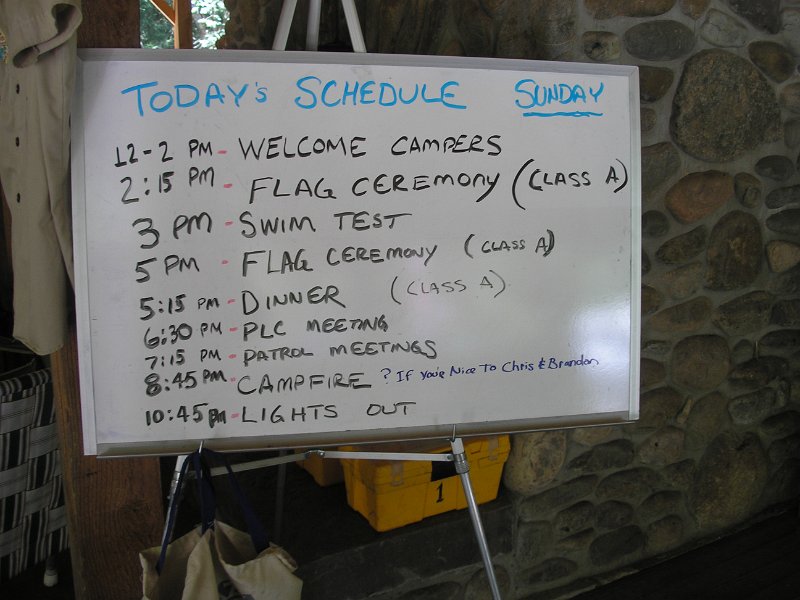 TODAY'S SCHEDULE SUNDAY
12-2 PM - WELCOME CAMPERS
2:15 PM - FLAG CEREMONY (CLASS A)
3 PM - SWIM TEST
5 PM - FLAG CEREMONY (CLASS A)
5:15 PM - DINNER (CLASS A)
6:30 PM - PLC MEETING
7:15 PM - PATROL MEETINGS
8:45 PM - CAMPFIRE ? If you're Nice To Chris & Brandon
10:45 PM - LIGHTS OUT
1